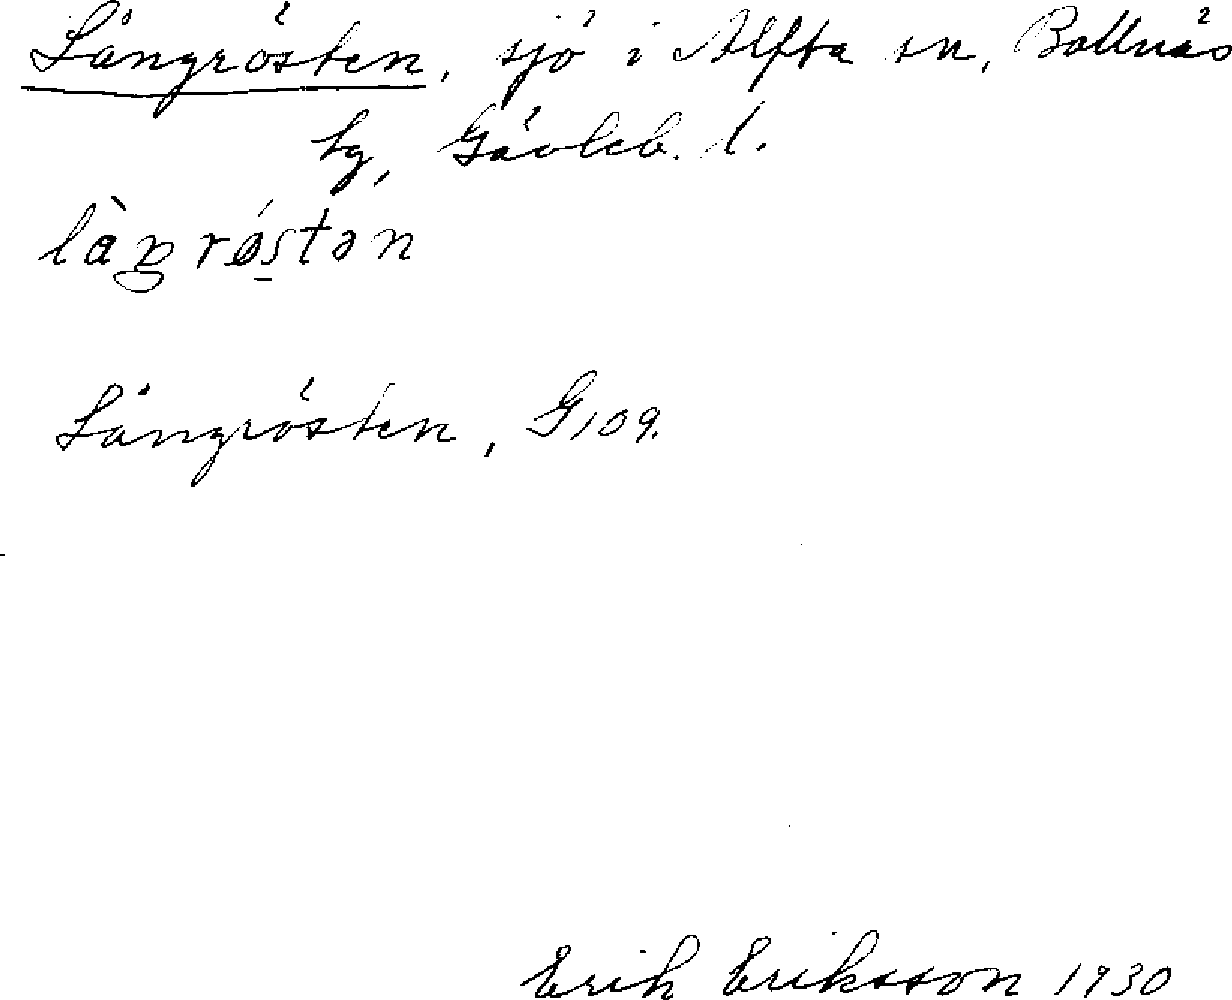 Långrösten, sjö i Alfta sn, Bollnäs
tg, Gävleb. l.
làŋrǿstən
Långrösten, G109.
Erik Eriksson 1930